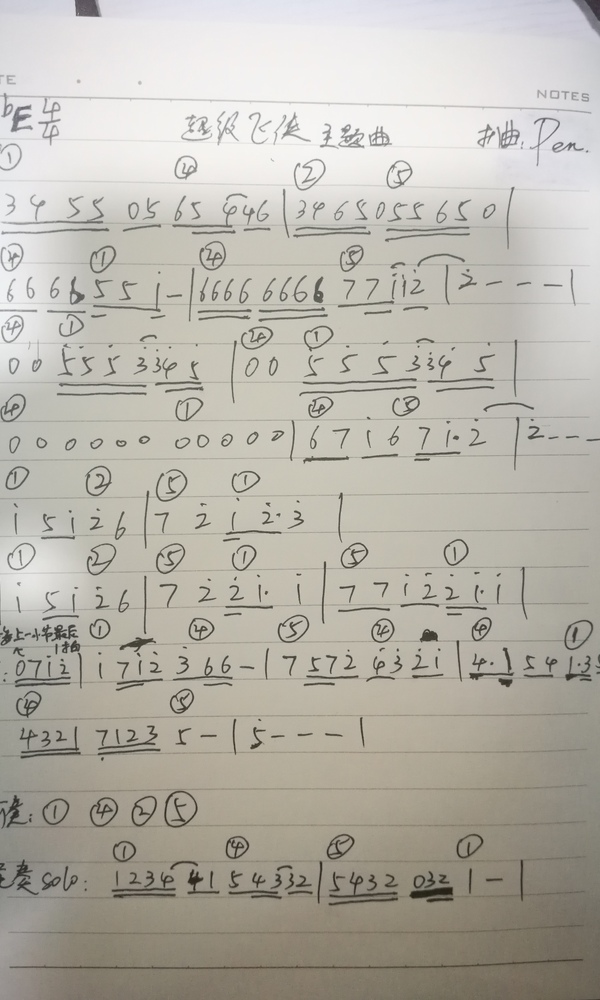 NOTES
bE 4/4 超级飞侠 主题曲 扒曲:Pen.
① ④ ② ⑤
3 4 5 5 0 5 6 5 4 4 6 | 3 4 6 5 0 5 5 6 5 0 |
④ ① ④ ⑤
6 6 6 6 5 5 i - | 6 6 6 6 6 6 6 6 7 7 i i 2̇ | 2̇ - - - |
④ ① ④ ①
0 0 5̇ 5̇ 5̇ 3̇ 3̇ 4̇ 5̇ | 0 0 5̇ 5̇ 5̇ 3̇ 3̇ 4̇ 5̇ |
④ ① ④ ⑤
0 0 0 0 0 0 0 0 0 0 0 | 6 7 i 6 7 i· 2̇ | 2̇ - - -
① ② ⑤ ①
i 5 i 2̇ 6 | 7 2̇ i 2̇· 3̇ |
① ② ⑤ ① ⑤ ①
i 5 i 2̇ 6 | 7 2̇ 2̇ i· i | 7 7 i 2̇ 2̇ i· i |
上一小节最后 1拍 ① ④ ⑤ ④ ④ ①
: 0 7 i 2̇ | i 7 i 2̇ 3̇ 6 6 - | 7 5 7 2̇ 4̇ 3̇ 2̇ i | 4· 1 5 4 1·3
④ ⑤
4 3 2 1 7̣ 1 2 3 5 - | 5 - - - |
: ① ④ ② ⑤
奏solo: ① ④ ⑤ ①
1 2 3 4 4 1 5 4 3 3 2 | 5 4 3 2 0 3 2 1 - |